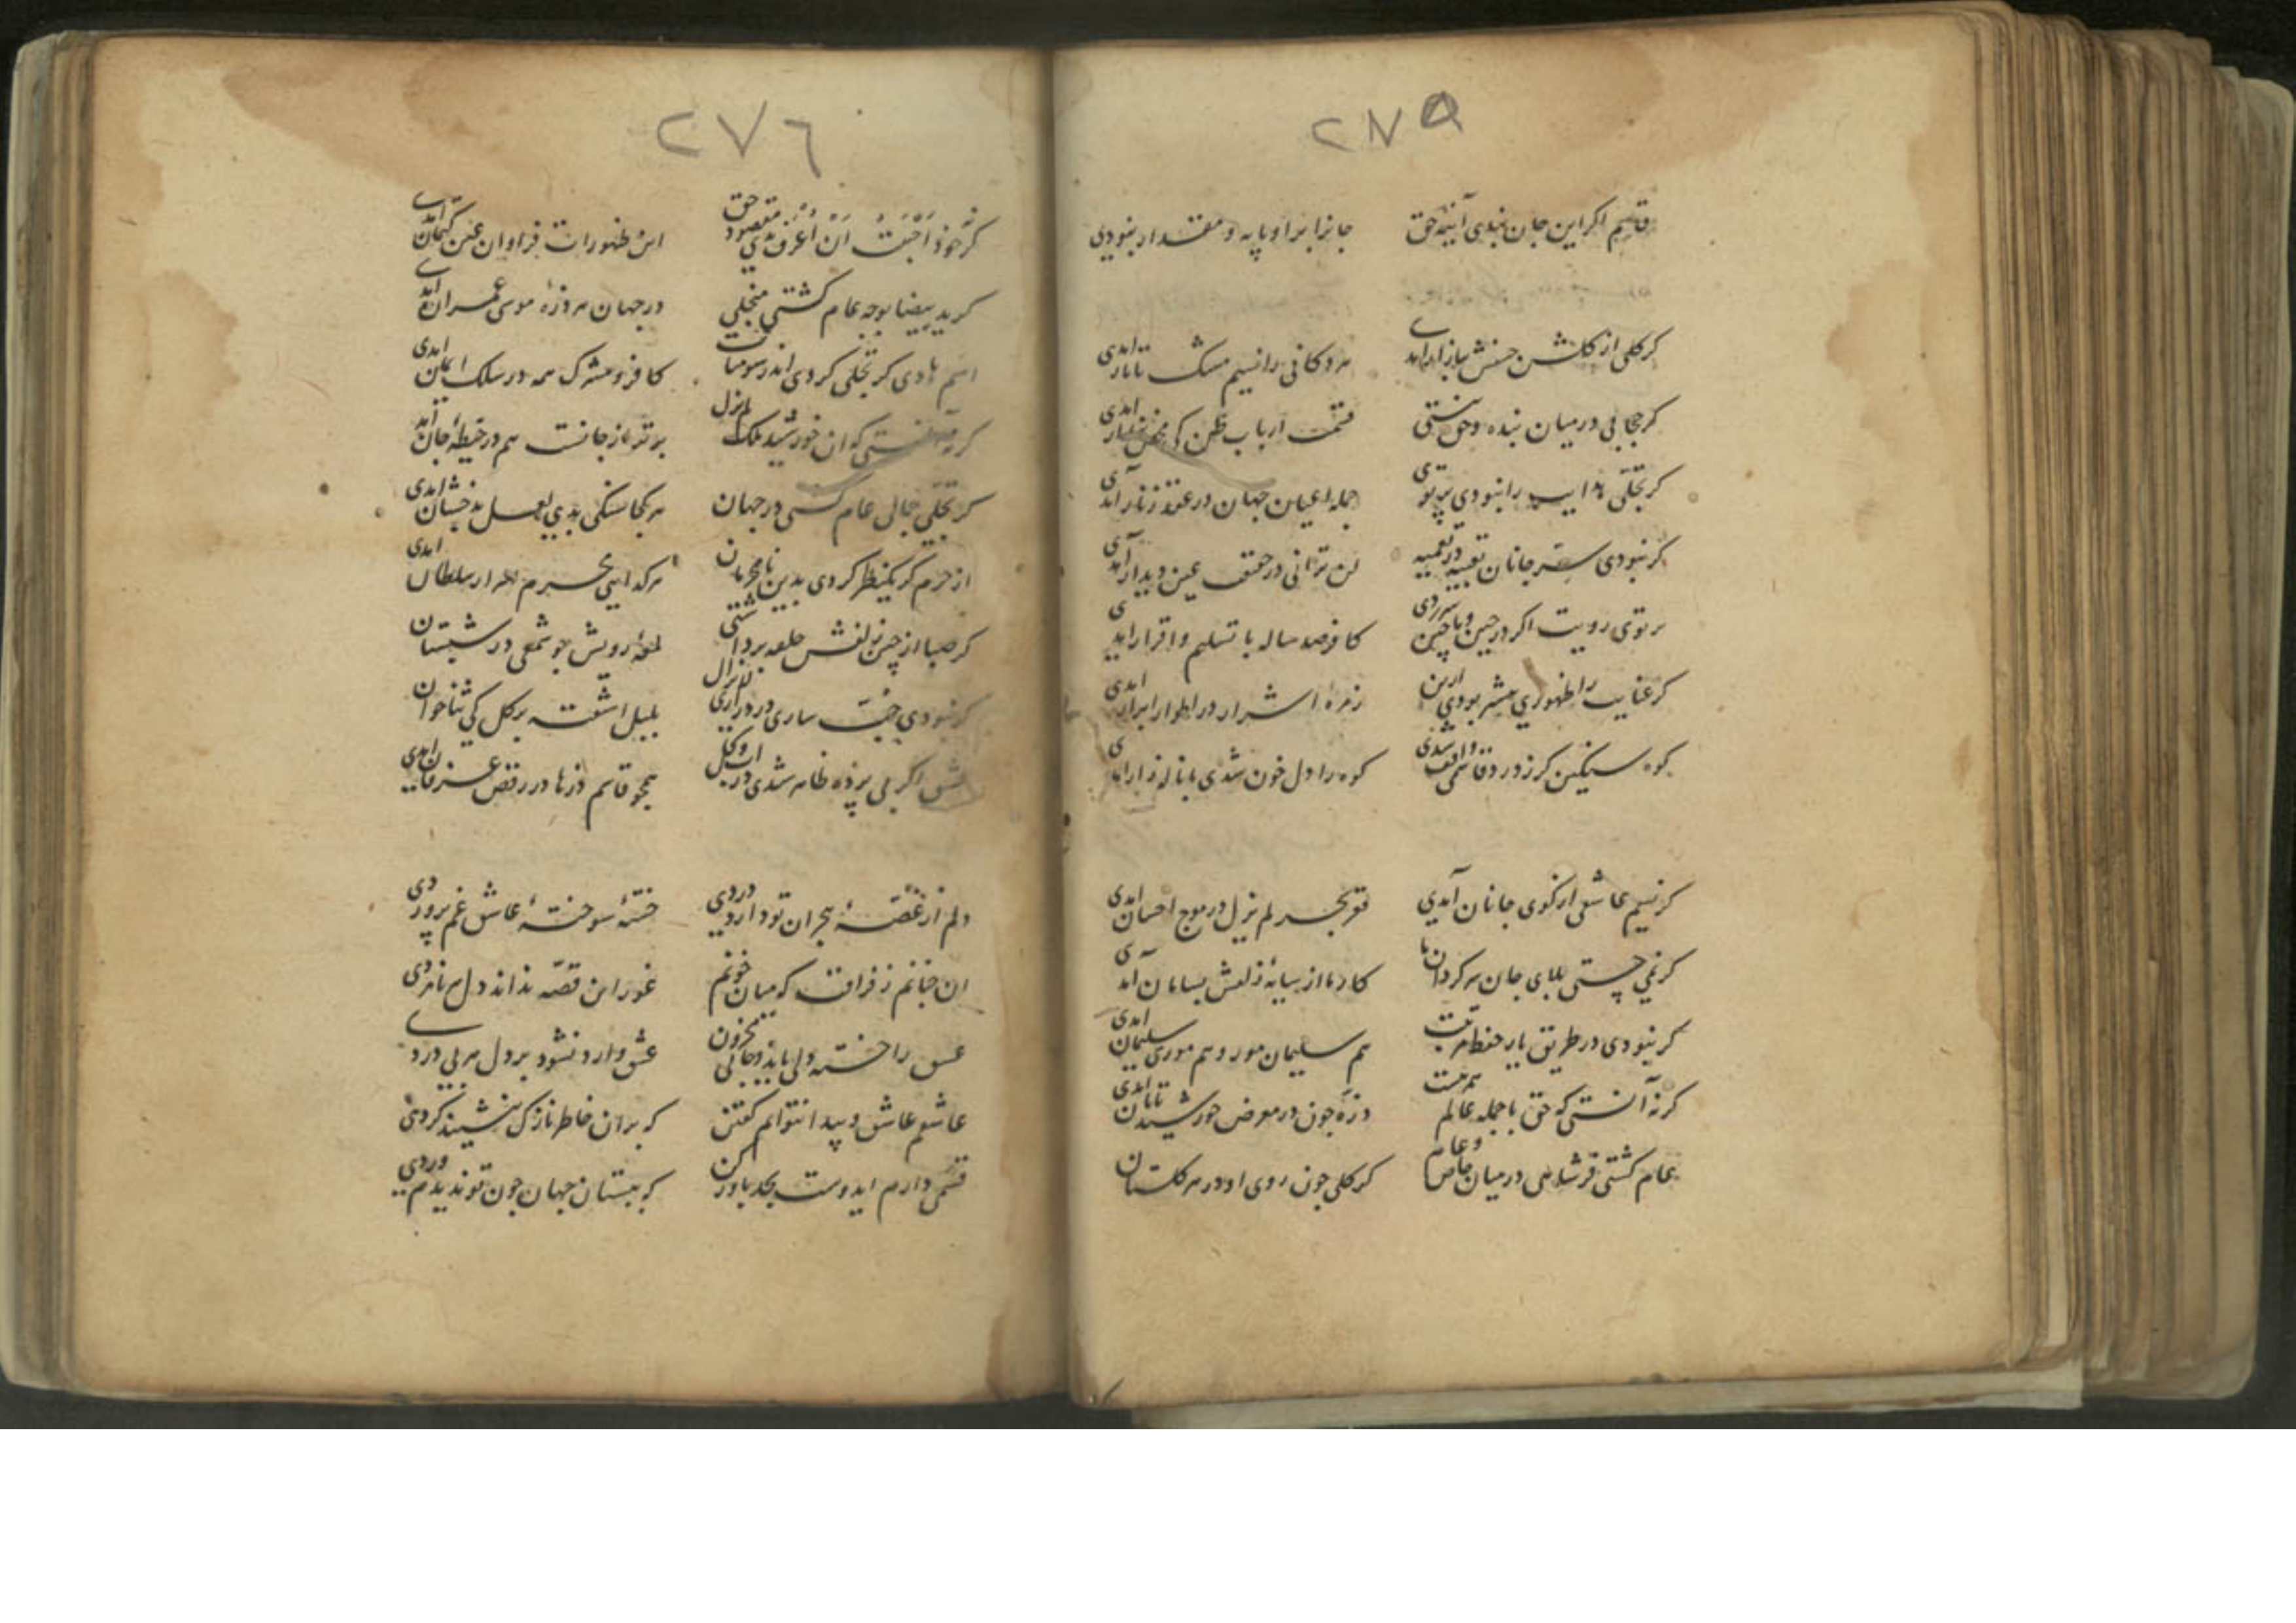 ٢٧٥
قاسم اکر این جان نبدی آینهٔ حق جانرا بر او پایه و مقدار نبودی
کر کلی از کلشن حسنش ببازار آمدی هر دکانی را نسیم مشک تاتار آمدی
کر حجابی در میان بنده و حق نیستی قسمت ارباب ظن کی
کر تجلی هدایت را نبودی پرتوی جمله اعیان جهان در عقد زنار آمدی
کر نبودی سر جانان تعبیه در تعمیه لن ترانی در حق عین دیدار آمدی
پرتوی رویت اکر در چین و ماچین سر زدی کافر صد ساله با تسلیم و اقرار آمدی
کر عنایت را ظهوری بیشتر بودی ازین زمره اشرار در اطوار ابرار آمدی
کوه سنکین کر ز درد قاسمی واقف شدی کوه را دل خون شدی با نالهٔ زار آمدی
کر نسیم عاشقی از کوی جانان آمدی قعر بحر لم یزل در موج احسان آمدی
کر نمی جستی بلای جان سرکردان ما کار ما از سایهٔ زلفش بسامان آمدی
کر نبودی در طریق یار حفظ مرتبت هم سلیمان مور و هم موری سلیمان آمدی
کر نه آنستی که حق با جمله عالم همرهست ذره چون در معرض خورشید تابان آمدی
عام کشتی سر شاهی در میان خاص و عام کر کلی چون روی او در هر کلستان
٢٧٦
کر نه خود اَحْبَبْتُ اَنْ اُعْرَف بدی مقصود حق این ظهورات فراوان عین کتمان آمدی
کر ید بیضا بوجه عام کشتی منجلی در جهان هر ذرهٔ موسی عمران آمدی
اسم هادی کر تجلی کردی اندر سومنات کافر و مشرک همه در سلک ایمان آمدی
کر نه آنستی که ان خورشید ملک لم یزل برتر از جانست هم در خیطهٔ جان آمدی
کر تجلی جمال عام کشتی در جهان هر کجا سنکی بدی لعل بدخشان آمدی
از حرم کر یکنظر کردی بدین نامحرمان هر کدایی محرم اسرار سلطان آمدی
کر صبا از چین زلفش حلقه برداشتی لمعهٔ رویش چو شمعی در شبستان
کر نبودی حب ساری در دراری لم یزال بلبل اشفته بر کل کی ثناخوان
عشق اکر بی پرده ظاهر شدی در آب و کل همچو قاسم ذرها در رقص عرفان آمدی
دلم از غصهٔ هجران تو دارد دردی خستهٔ سوختهٔ عاشق غم پروردی
ان چنانم ز فراقت که میان خونم غور این قصه نداند دل هر نامردی
عشق را خسته دلی باید و جانی محزون عشق وارد نشود بر دل هر بی دردی
عاشقم عاشق و پیدا نتوانم کفتن که بر ان خاطر نازک بنشیند کردی
قسمی دارم ایدوست بجد باور کن که ببستان جهان چون تو ندیدم وردی